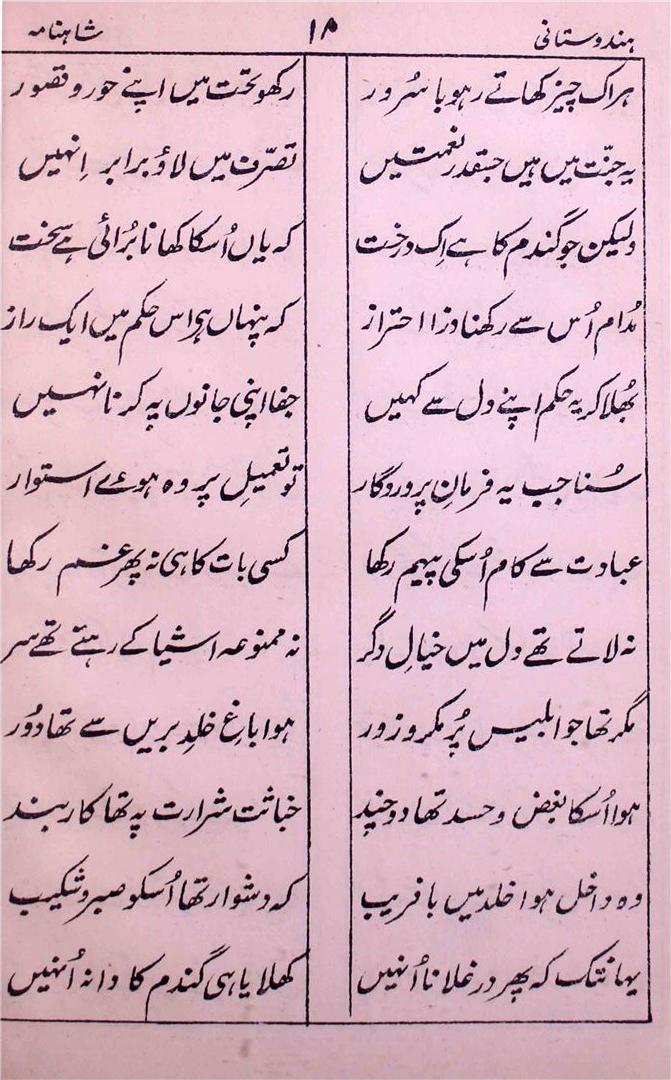 ہندوستانی ۱۴ شاہنامہ
ہراک چیز کھاتے رہو با سُرور رکھو تحت میں اپنے حور و قصور
یہ جنّت میں ہیں جسقدر نعمتیں تصرّف میں لاؤ برابر اِنہیں
ولیکن جو گندم کا ہے اِک درخت کہ یاں اُسکا کھانا بُرائی ہے سخت
مُدام اُس سے رکھنا ذرا احتراز کہ پنہاں ہے اس حکم میں ایک راز
بُھلا کر یہ حکم اپنے دل سے کہیں جفا اپنی جانوں پہ کرنا نہیں
سُنا جب یہ فرمانِ پروردگار تو تعمیل پر وہ ہوئے استوار
عبادت سے کام اُسکی پیہم رکھا کسی بات کا ہی نہ پھر غم رکھا
نہ لاتے تھے دل میں خیالِ دگر نہ ممنوعہ اشیا کے رہتے تھے سر
مگر تھا جو ابلیس پُر مکر و زور ہوا باغِ خلدِ بریں سے تھا دُور
ہوا اُسکا بغض و حسد تھا دوچند خباثت شرارت پہ تھا کاربند
وہ داخل ہوا خلد میں با فریب کہ دشوار تھا اُسکو صبر و شکیب
یہانتک کہ پھر درغلانا اُنہیں کھلایا ہی گندم کا دانہ اُنہیں